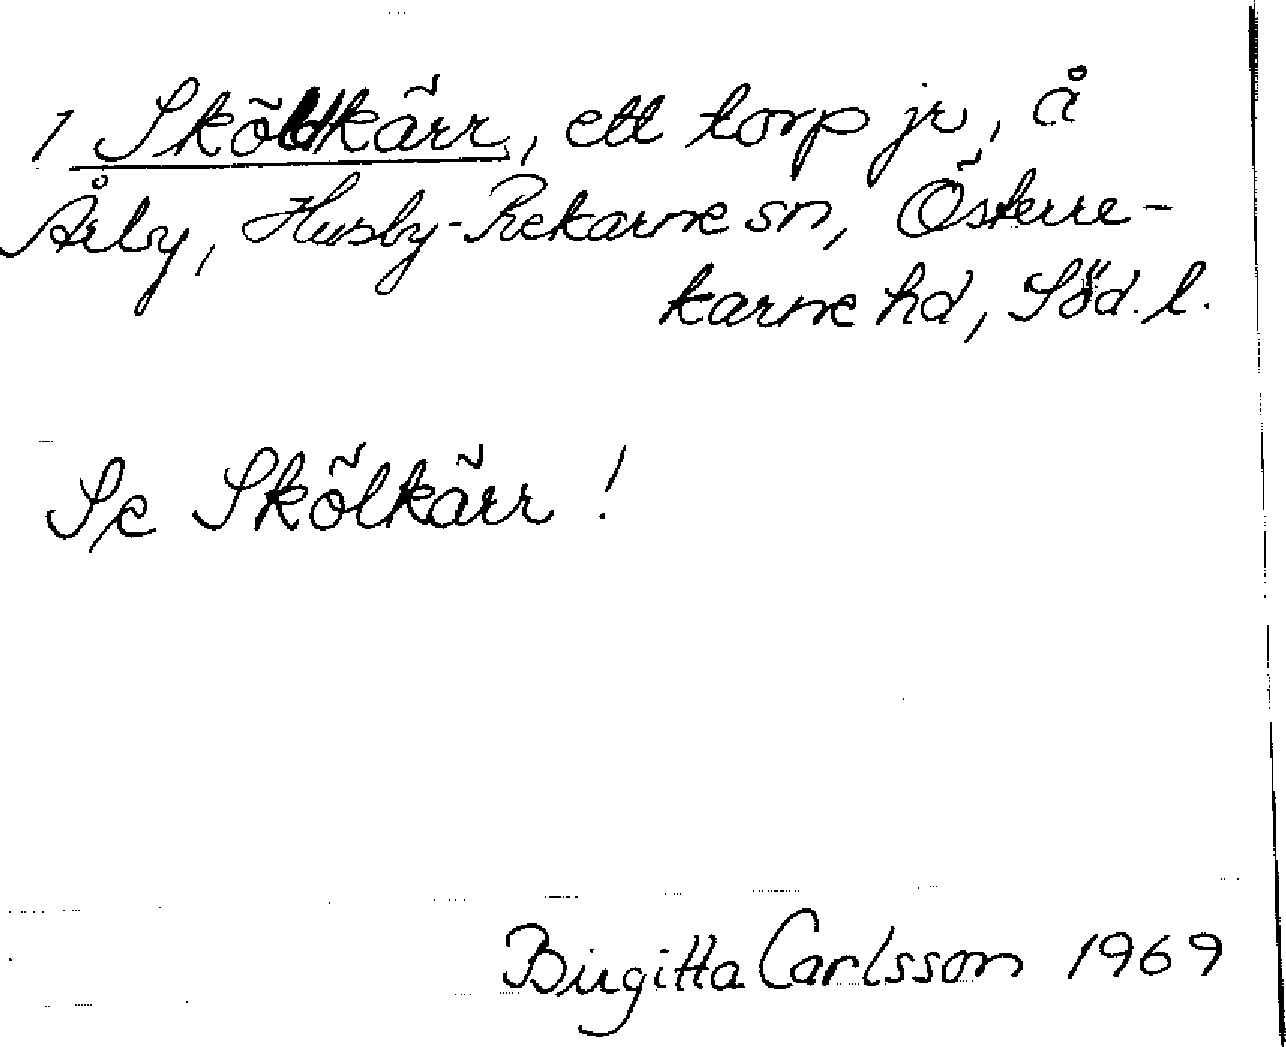 1 Sköldkärr, ett torp jr, å
Årby, Husby-Rekarne sn, Österre-
karne hd, Söd. l.
Se Skölkärr!
Birgitta Carlsson 1969